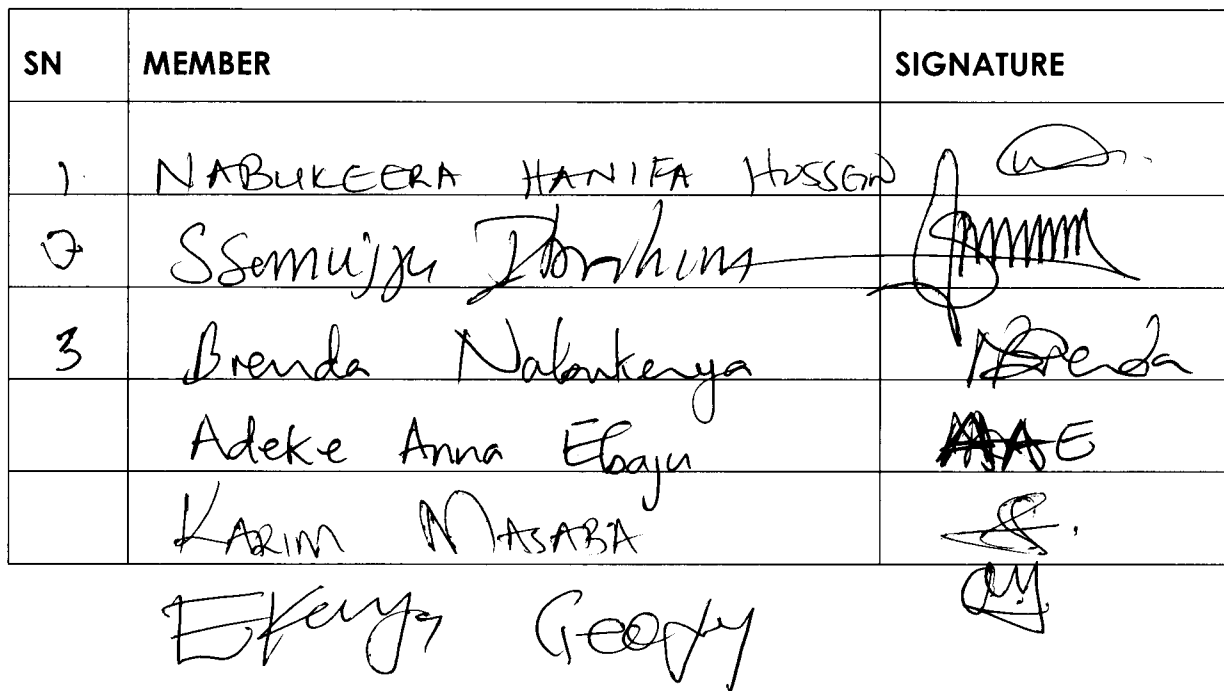 SN MEMBER SIGNATURE
1 NABUKEERA HANIFA HUSSEIN
2 Ssemujju Ibrahim
3 Brenda Nabukenya NBrenda
Adeke Anna Ebaju AAE
KARIM MASABA
Ekanya Geofry